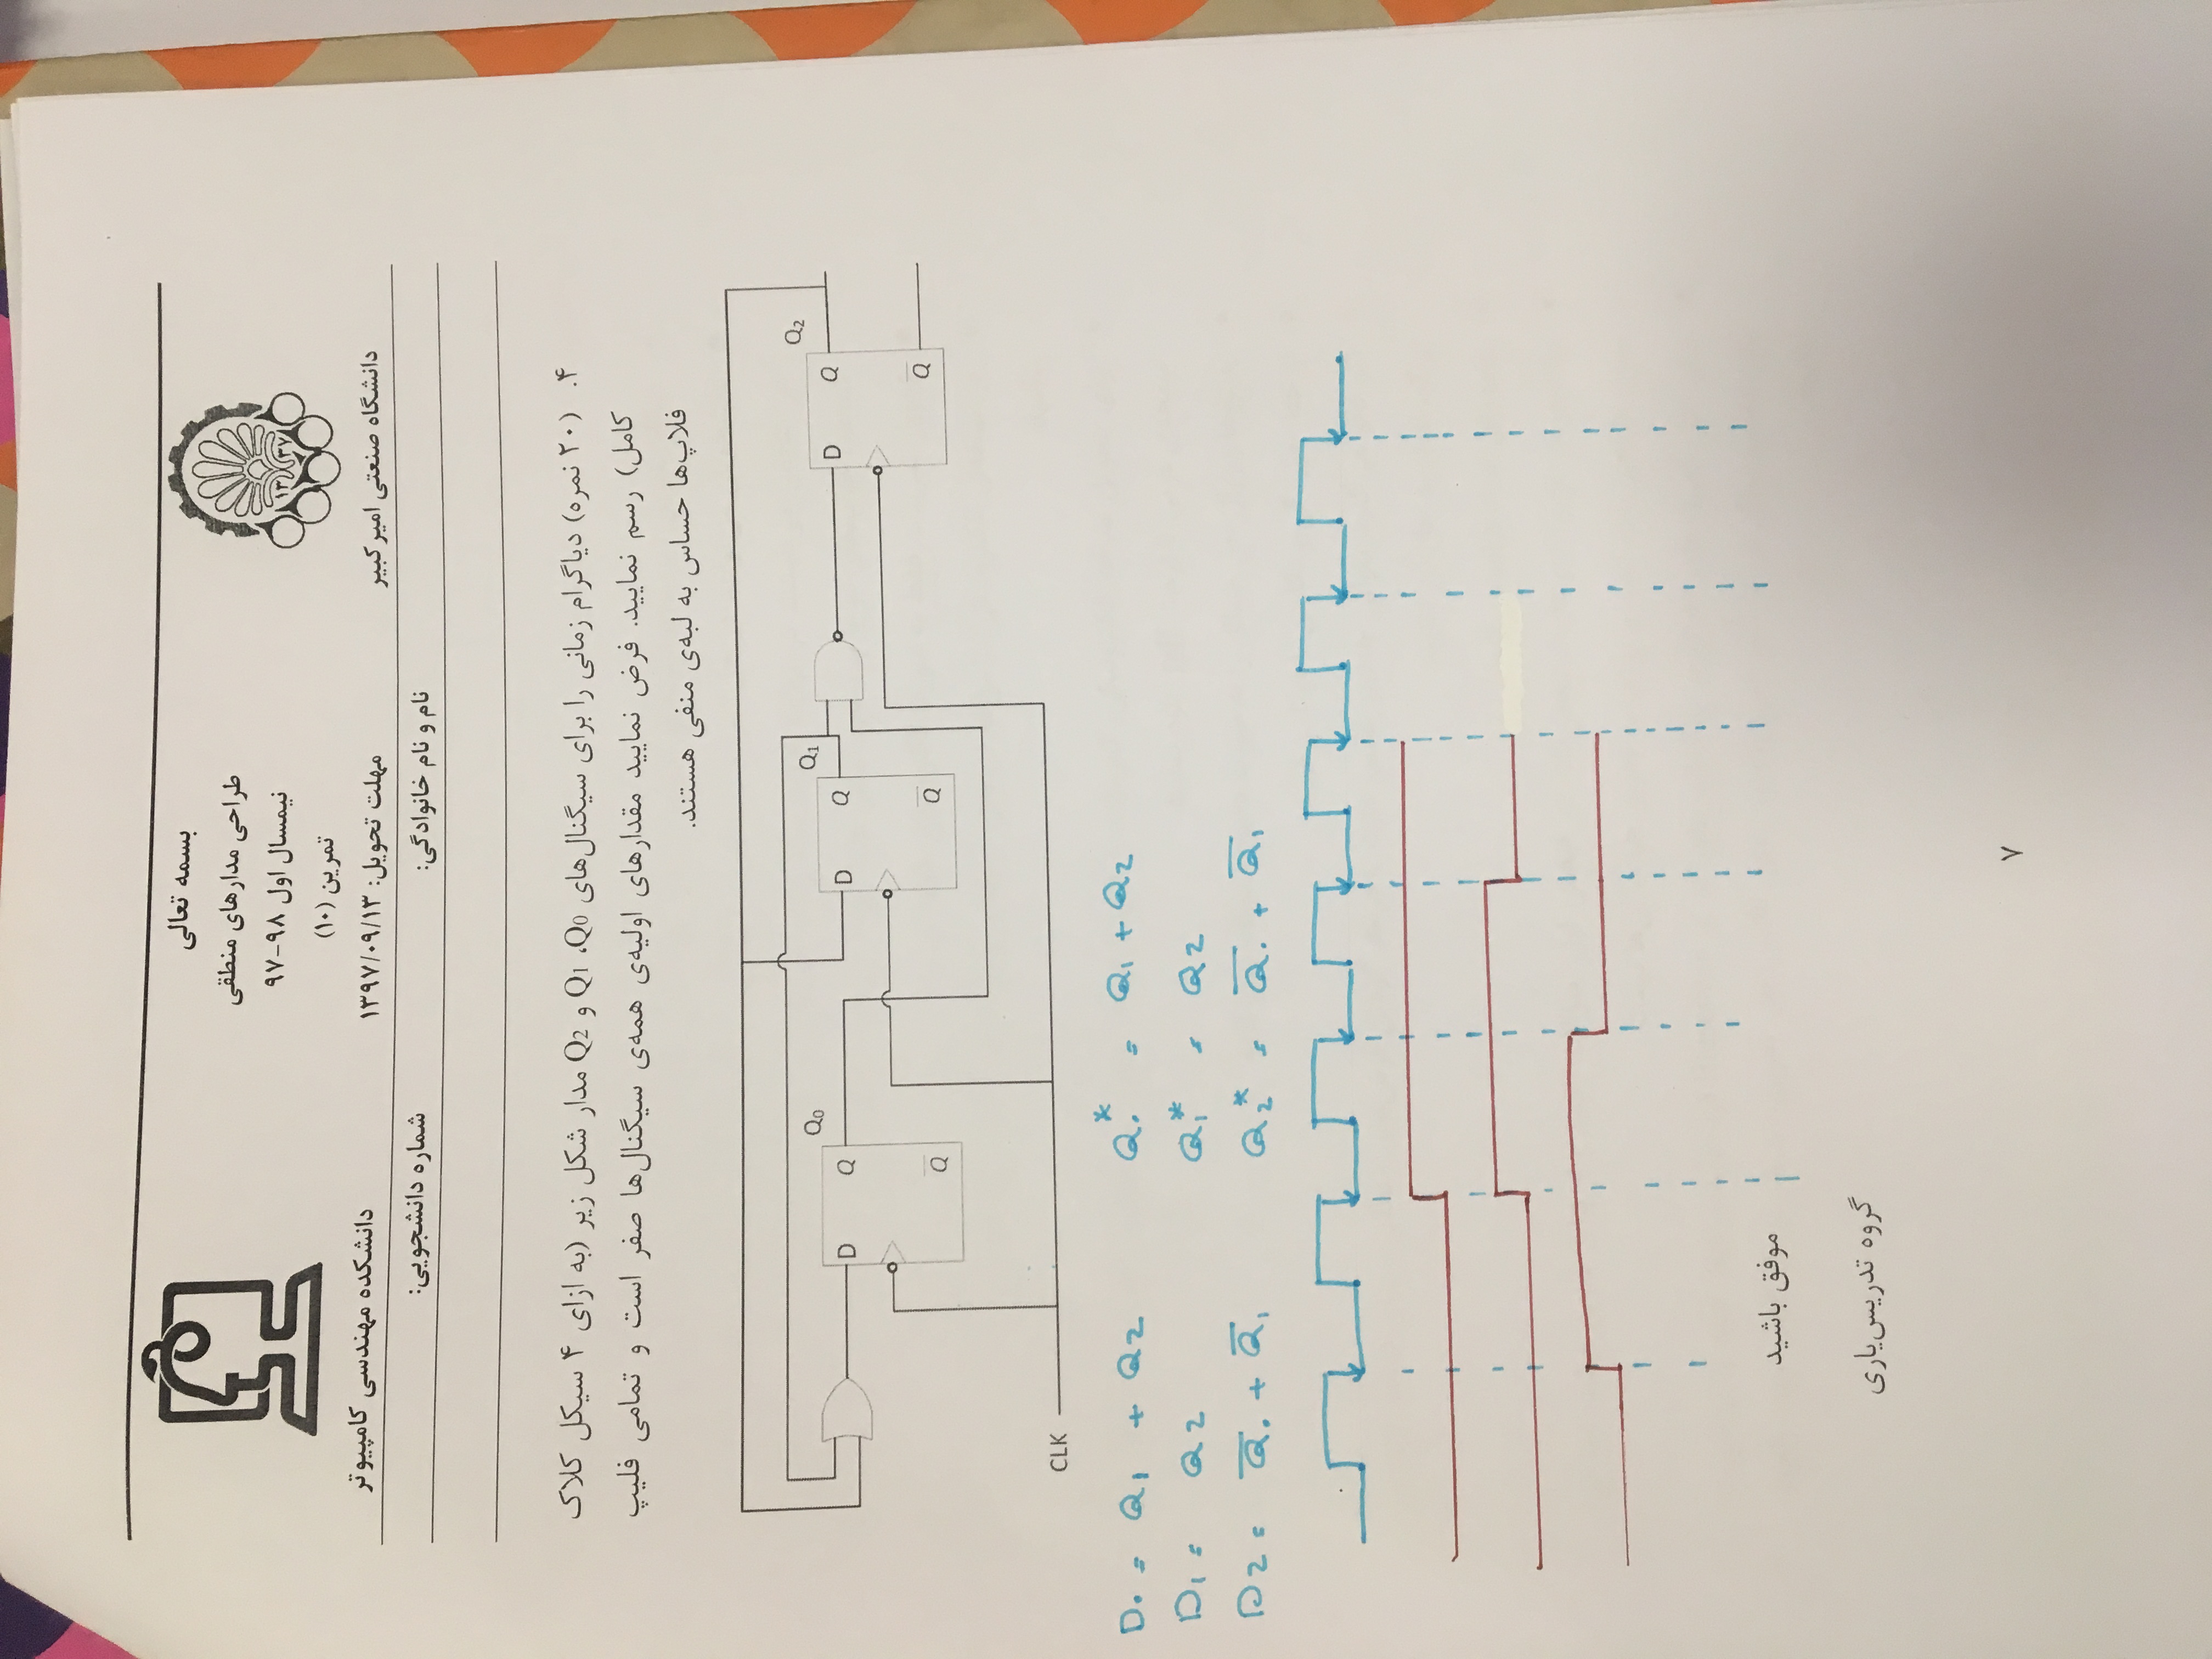 بسمه تعالی
طراحی مدارهای منطقی
نیمسال اول ۹۸-۹۷
تمرین (۱۰)
۱۳ ۳۷
دانشگاه صنعتی امیرکبیر
مهلت تحویل: ۱۳۹۷/۰۹/۱۳
دانشکده مهندسی کامپیوتر
نام و نام خانوادگی: شماره دانشجویی:
۴. (۲۰ نمره) دیاگرام زمانی را برای سیگنال‌های Q0، Q1 و Q2 مدار شکل زیر (به ازای ۴ سیکل کلاک
کامل) رسم نمایید. فرض نمایید مقدارهای اولیه‌ی همه‌ی سیگنال‌ها صفر است و تمامی فلیپ
فلاپ‌ها حساس به لبه‌ی منفی هستند.
Q0 Q1 Q2
D Q D Q D Q
Q̅ Q̅ Q̅
CLK
D. = Q1 + Q2 Q.* = Q1 + Q2
D1 = Q2 Q1* = Q2
D2 = Q̅. + Q̅1 Q2* = Q̅. + Q̅1
موفق باشید
گروه تدریس‌یاری
۷